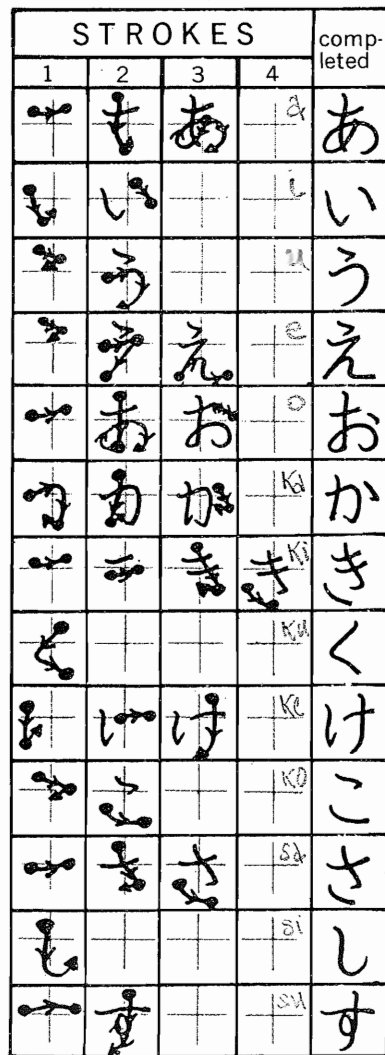 STROKES
comp-
leted
1 2 3 4
a あ
i い
u う
e え
o お
Ka か
Ki き
Ku く
Ke け
Ko こ
sa さ
si し
su す